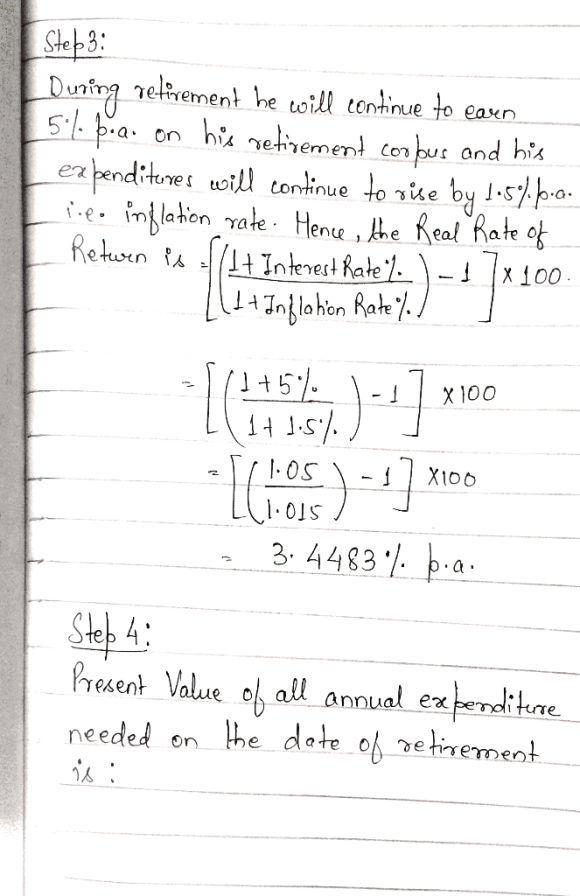 Step 3:
During retirement he will continue to earn
5% p.a. on his retirement corpus and his
expenditures will continue to rise by 1.5% p.a.
i.e. inflation rate. Hence, the Real Rate of
Return is = [(1 + Interest Rate % / 1 + Inflation Rate %.) - 1] x 100.
= [(1 + 5% / 1 + 1.5%) - 1] x 100
= [(1.05 / 1.015) - 1] x 100
= 3.4483 % p.a.
Step 4:
Present Value of all annual expenditure
needed on the date of retirement
is :